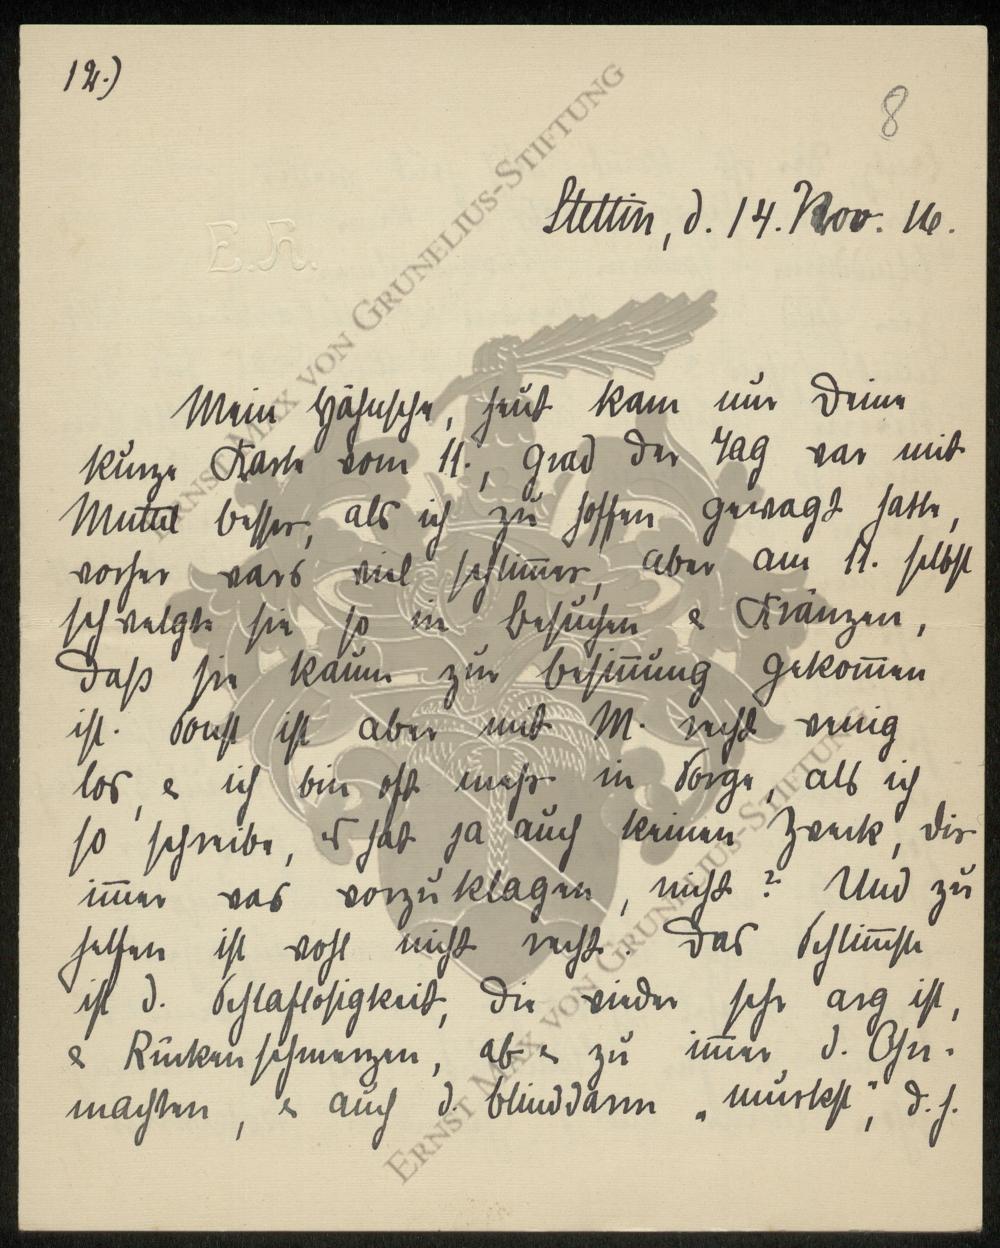 12.)
8
Stettin, d. 14. Nov. 16.
E.K.
Mein Hähnsche, heut kam nur Deine
kurze Karte vom 11., grad der Tag war mit
Muttel besser, als ich zu hoffen gewagt hatte,
vorher wars viel schlim̅er, aber am 11. selbst
schwelgte sie so in Besuchen & Kränzen,
daß sie kaum zur Besin̅ung gekom̅en
ist. Sonst ist aber mit M. recht wenig
los, & ich bin oft mehr in Sorge, als ich
so schreibe, es hat ja auch keinen Zweck, Dir
im̅er was vorzuklagen, nicht? Und zu
helfen ist wohl nicht recht. Das Schlim̅ste
ist d. Schlaflosigkeit, die wieder sehr arg ist,
& Rückenschmerzen, ab & zu im̅er d. Ohn-
machten, & auch d. Blinddarm „murkst“, d. h.
ERNST MAX VON GRUNELIUS-STIFTUNG
ERNST MAX VON GRUNELIUS-STIFTUNG